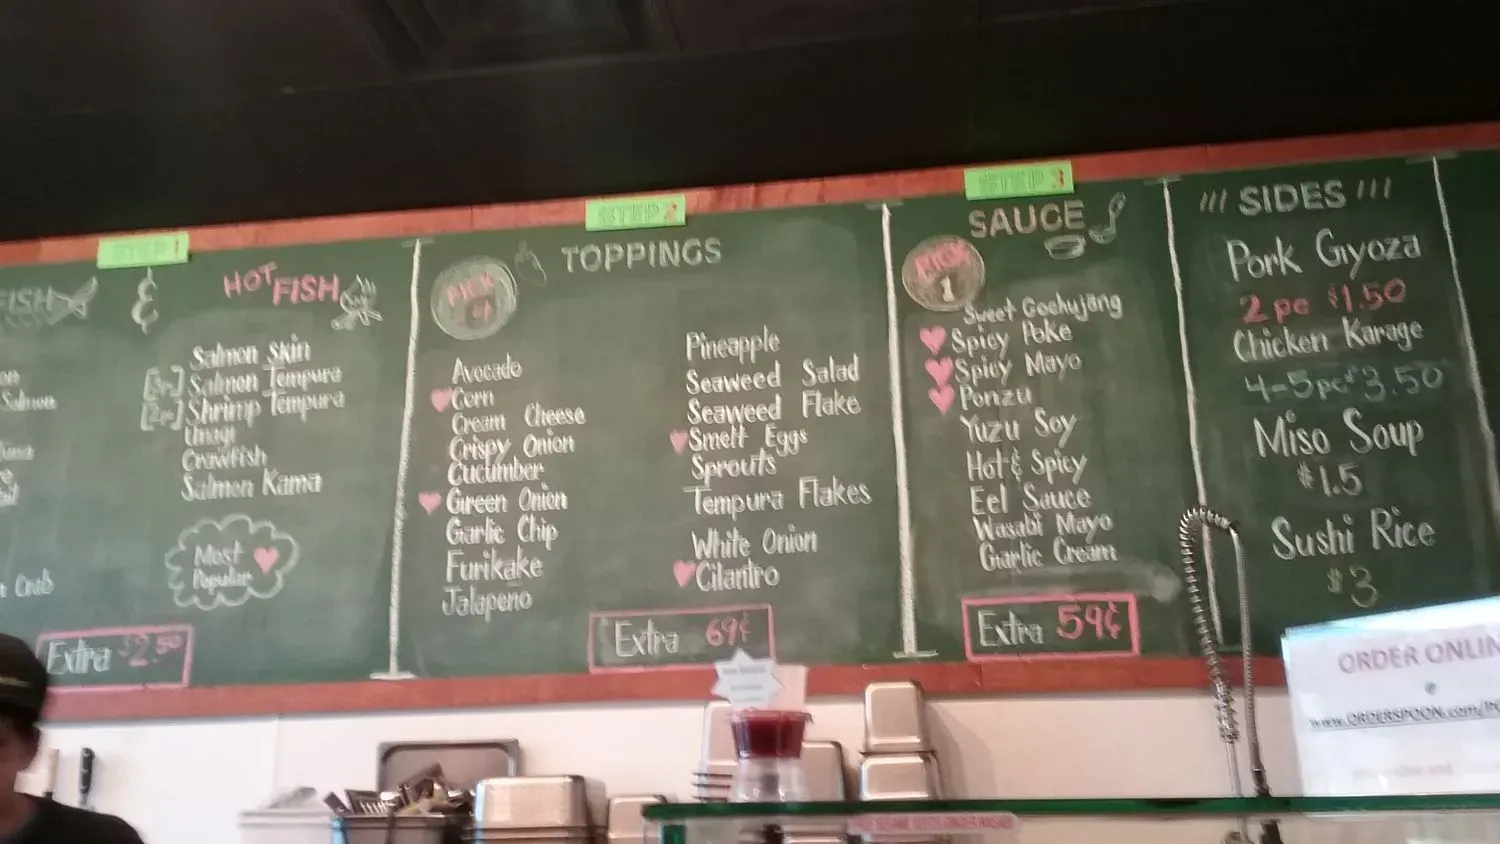 STEP 1
FISH
&
HOT FISH
Salmon
Crab
Salmon Skin
[3pc] Salmon Tempura
[2pc] Shrimp Tempura
Unagi
Crawfish
Salmon Kama
Most
Popular
Extra $2.50
STEP 2
PICK
4
TOPPINGS
Avocado
Corn
Cream Cheese
Crispy Onion
Cucumber
Green Onion
Garlic Chip
Furikake
Jalapeno
Pineapple
Seaweed Salad
Seaweed Flake
Smelt Eggs
Sprouts
Tempura Flakes
White Onion
Cilantro
Extra 69¢
STEP 3
SAUCE
PICK
1
Sweet Gochujang
Spicy Poke
Spicy Mayo
Ponzu
Yuzu Soy
Hot & Spicy
Eel Sauce
Wasabi Mayo
Garlic Cream
Extra 59¢
SIDES
Pork Gyoza
2 pc $1.50
Chicken Karage
4-5pc $3.50
Miso Soup
$1.5
Sushi Rice
$3
ORDER ONLIN
@
www.ORDERSPOON.com/PO